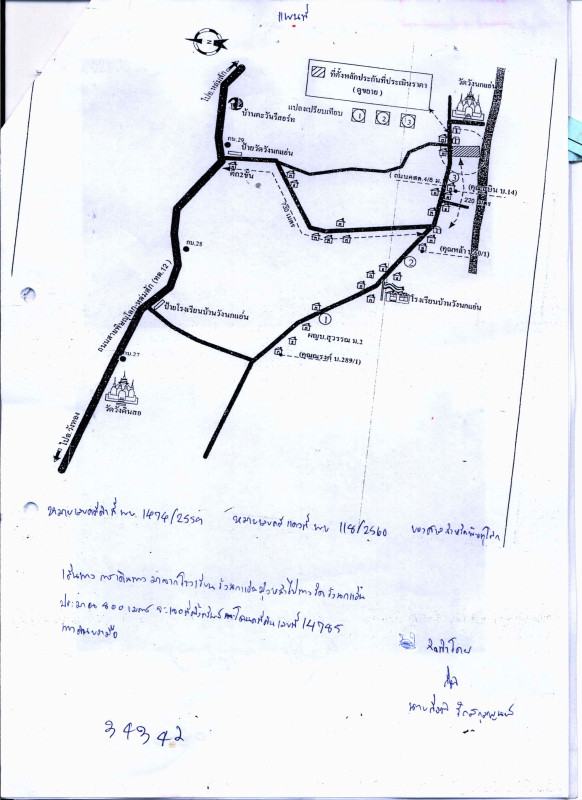 แผนที่
N
ไปอ.หล่มสัก
ที่ตั้งหลักประกันที่ประเมินราคา
( ดูขยาย )
วัดวังนกแอ่น
บ้านตะวันรีสอร์ท
แปลงเปรียบเทียบ 1 2 3
กม.29
ป้ายวัดวังนกแอ่น
ตึก2ชั้น
( ถนนคสล.4/8 ม.
3
บ.14)
220 เมตร
720 เมตร
กม.28
2
ถนนสายพิษณุโลก-หล่มสัก (ทล.12)
ป้ายโรงเรียนบ้านวังนกแอ่น
โรงเรียนบ้านวังนกแอ่น
1
ผญบ.สุวรรณ ม.2
บ.289/1)
กม.27
วัดวังดินสอ
ไปอ.วังทอง
หมายเลขคดีดำที่ ผบ. 1474/255 หมายเลขคดีแดงที่ ผบ 118/2560 ของศาลจังหวัดพิษณุโลก
เส้นทาง การเดินทาง มาจากโรงเรียน วังนกแอ่นมุ่งหน้าไปทางวัดวังนกแอ่น
ประมาณ 800 เมตร จะเจอที่ตั้งทรัพย์ โฉนดที่ดิน เลขที่ 14785
ทางขวามือ
นาย
34342